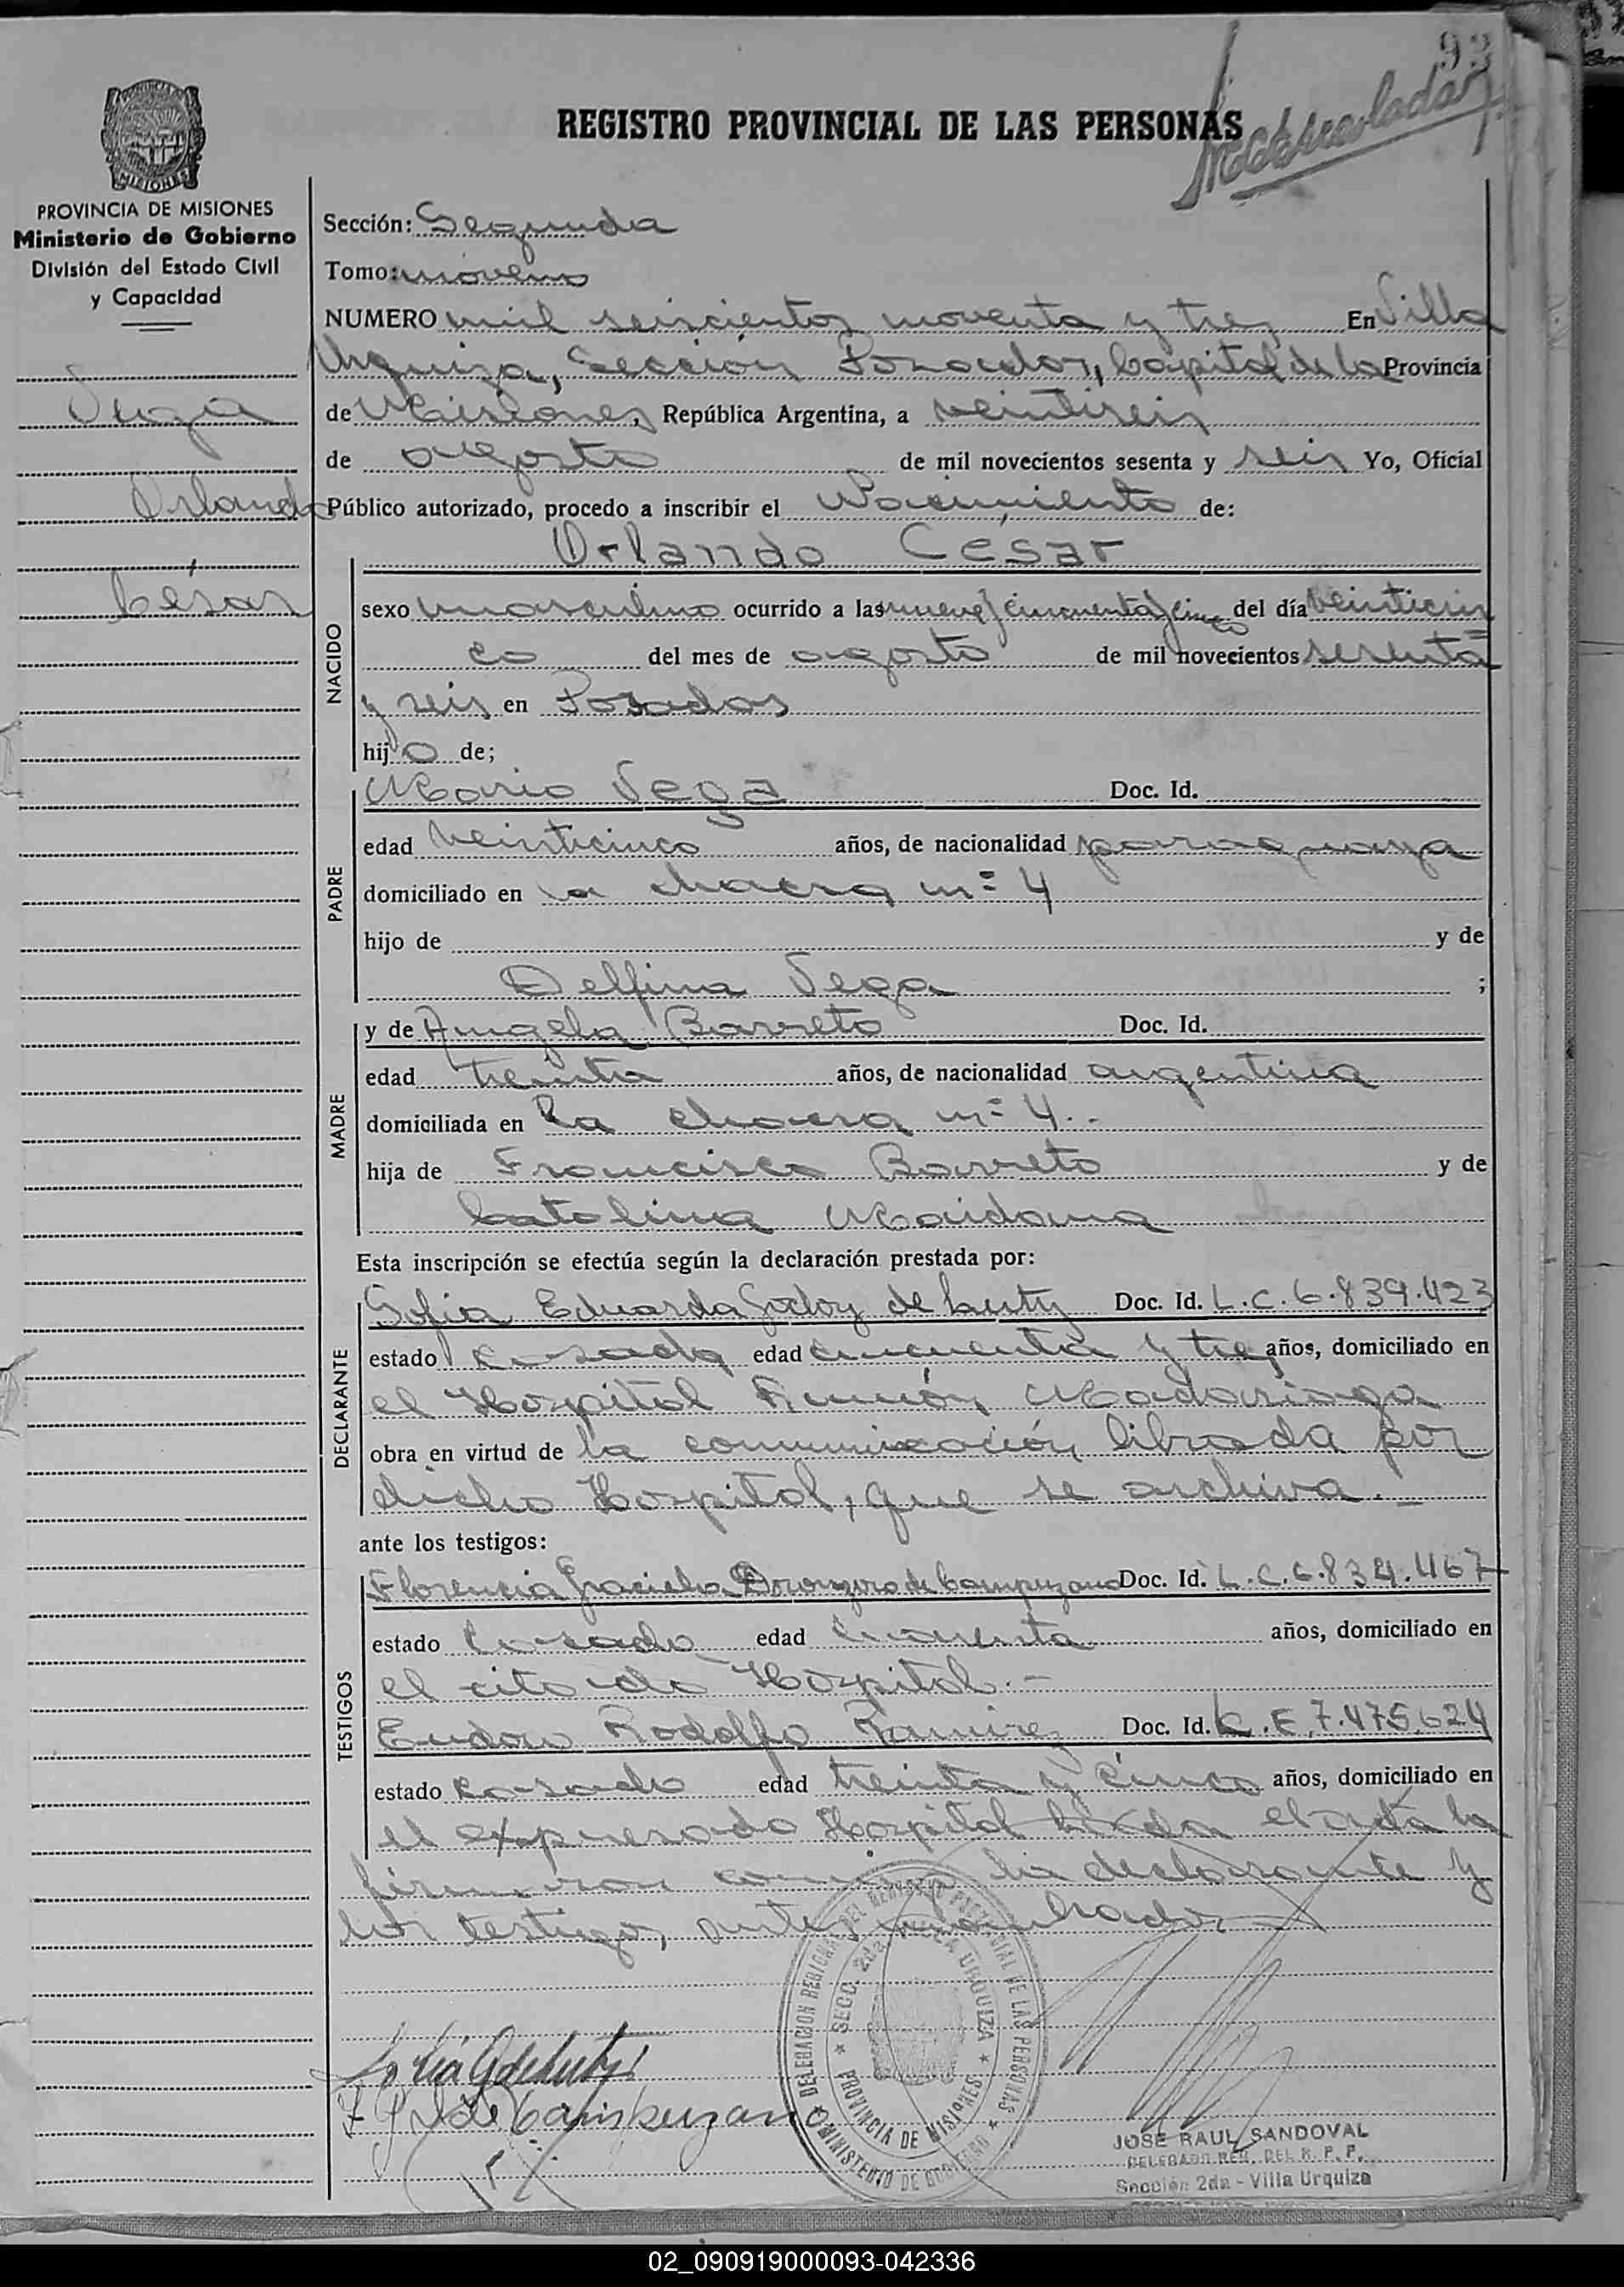 93
REGISTRO PROVINCIAL DE LAS PERSONAS
MISIONES
PROVINCIA DE MISIONES
Ministerio de Gobierno
División del Estado Civil
y Capacidad
Vega
Orlando
César
Sección: Segunda
Tomo: noveno
NUMERO mil seiscientos noventa y tres En Villa
Urquiza, Sección Posadas, Capital de la Provincia
de Misiones, República Argentina, a veintiseis
de agosto de mil novecientos sesenta y seis Yo, Oficial
Público autorizado, procedo a inscribir el Nacimiento de:
Orlando Cesar
NACIDO
sexo masculino ocurrido a las nueve y cincuenta y cinco del día veinticin
co del mes de agosto de mil novecientos sesenta
y seis en Posadas
hijo de;
PADRE
Mario Vega Doc. Id.
edad veinticinco años, de nacionalidad paraguaya
domiciliado en la chacra nº 4
hijo de y de
Delfina Vega ;
MADRE
y de Angela Barreto Doc. Id.
edad treinta años, de nacionalidad argentina
domiciliada en la chacra nº 4.-
hija de Francisco Barreto y de
Catalina Maidana
Esta inscripción se efectúa según la declaración prestada por:
DECLARANTE
Sofia Eduarda Godoy de Doc. Id. L.C.6.839.423
estado casada edad cincuenta y tres años, domiciliado en
el Hospital Ramón Madariaga
obra en virtud de la comunicación librada por
dicho Hospital, que se archiva.-
ante los testigos:
TESTIGOS
Florencia Graciela de Campuzano Doc. Id. L.C.6.834.467
estado casado edad cuarenta años, domiciliado en
el citado Hospital.-
Rodolfo Ramirez Doc. Id. L.E.7.475.624
estado casado edad treinta y cinco años, domiciliado en
el expresado Hospital leida el acta la
firmaron conmigo la declarante y
los testigos, antes nombrados
DELEGACION REGIONAL DEL REGISTRO PROVINCIAL DE LAS PERSONAS
SECC. 2da. VILLA URQUIZA
PROVINCIA DE MISIONES
MINISTERIO DE GOBIERNO
JOSE RAUL SANDOVAL
DELEGADO REG. DEL R. P. P.
Sección 2da - Villa Urquiza
02_090919000093-042336